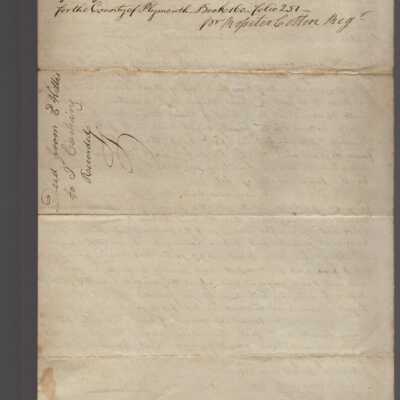 for the County of Plymouth Book 160. folio 251 —
pr Rossiter Cotton Regr
Deed from E Willis
to I Cushing
Recorded